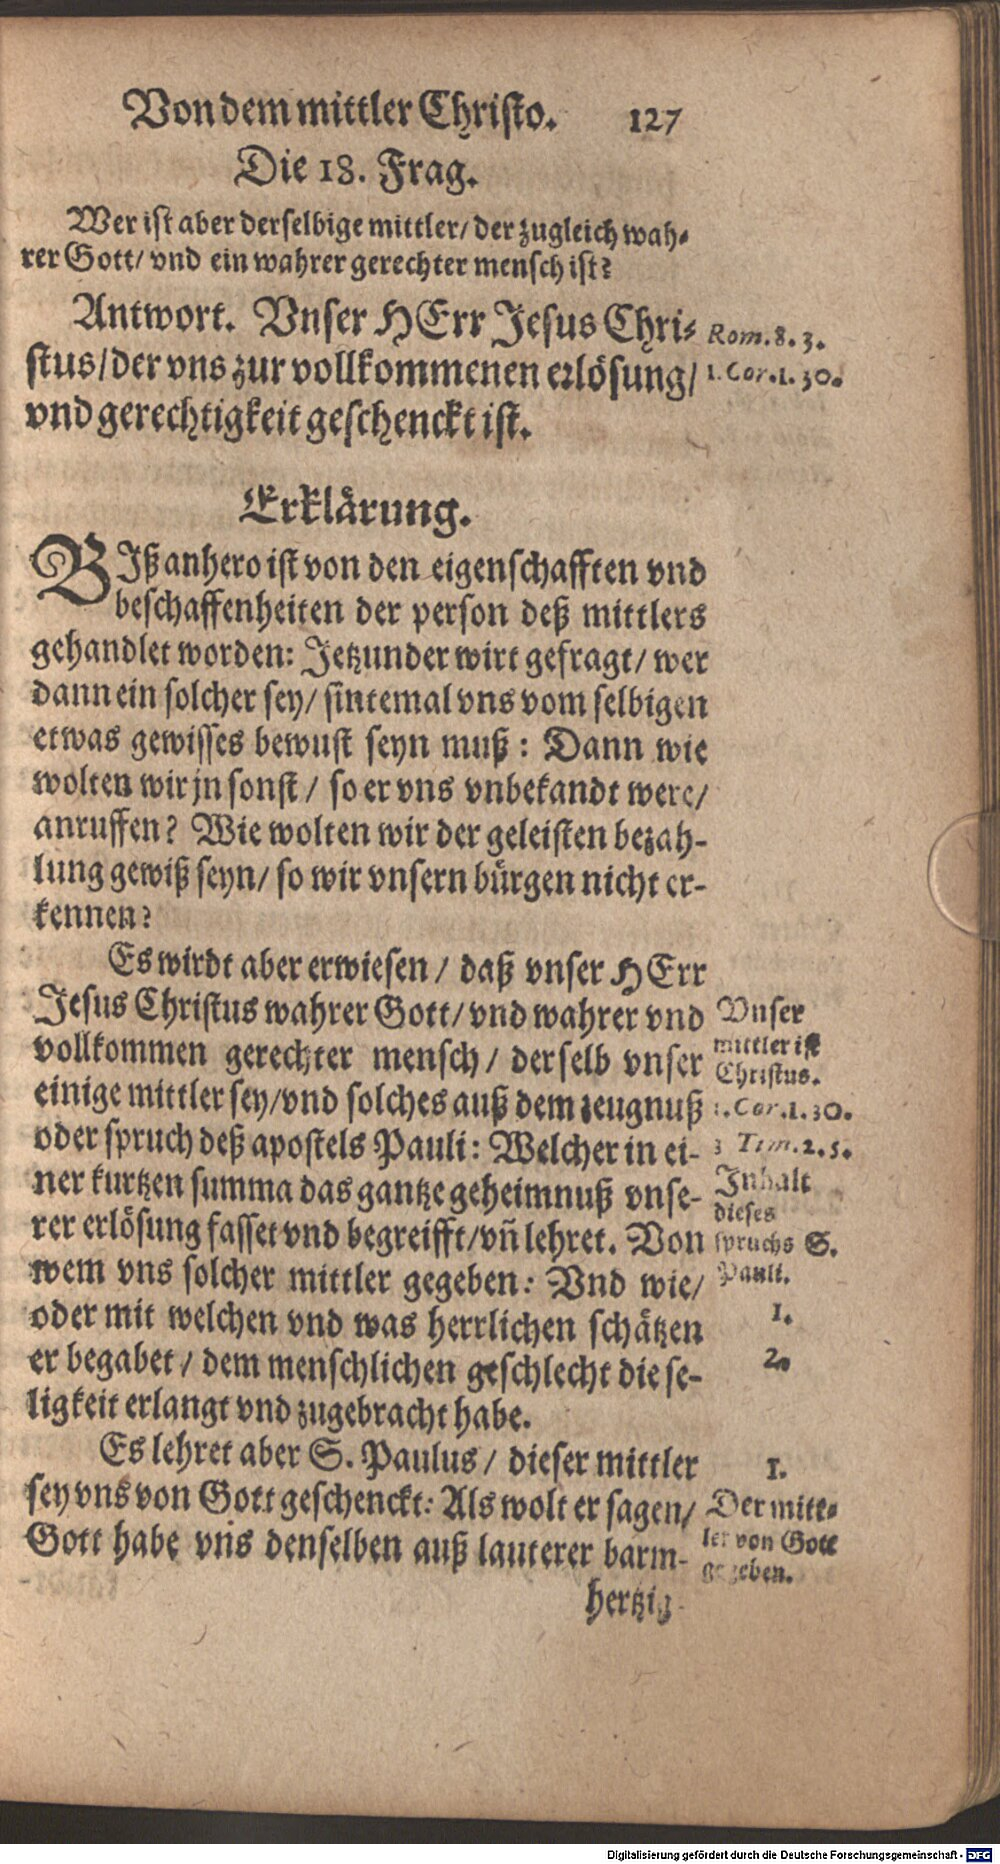 Von dem mittler Christo. 127
Die 18. Frag.
Wer ist aber derselbige mittler/ der zugleich wah-
rer Gott/ vnd ein wahrer gerechter mensch ist?
Antwort. Vnser HErr Jesus Chri-
stus/ der vns zur vollkommenen erlösung/
vnd gerechtigkeit geschenckt ist.
Rom. 8. 3.
1. Cor. 1. 30.
Erklärung.
BIß anhero ist von den eigenschafften vnd
beschaffenheiten der person deß mittlers
gehandlet worden: Jetzunder wirt gefragt/ wer
dann ein solcher sey/ sintemal vns vom selbigen
etwas gewisses bewust seyn muß: Dann wie
wolten wir jn sonst/ so er vns vnbekandt were/
anruffen? Wie wolten wir der geleisten bezah-
lung gewiß seyn/ so wir vnsern bürgen nicht er-
kennen?
Es wirdt aber erwiesen/ daß vnser HErr
Jesus Christus wahrer Gott/ vnd wahrer vnd
vollkommen gerechter mensch/ derselb vnser
einige mittler sey/ vnd solches auß dem zeugnuß
oder spruch deß apostels Pauli: Welcher in ei-
ner kurtzen summa das gantze geheimnuß vnse-
rer erlösung fasset vnd begreifft/ vñ lehret. Von
wem vns solcher mittler gegeben: Vnd wie/
oder mit welchen vnd was herrlichen schätzen
er begabet/ dem menschlichen geschlecht die se-
ligkeit erlangt vnd zugebracht habe.
Vnser
mittler ist
Christus.
1. Cor. 1. 30.
Tim. 2. 5.
Inhalt
dieses
spruchs S.
Pauli.
1.
2.
Es lehret aber S. Paulus/ dieser mittler
sey vns von Gott geschenckt: Als wolt er sagen/
Gott habe vns denselben auß lauterer barm-
1.
Der mitt-
ler von Gott
gegeben.
hertzig-
Digitalisierung gefördert durch die Deutsche Forschungsgemeinschaft - DFG